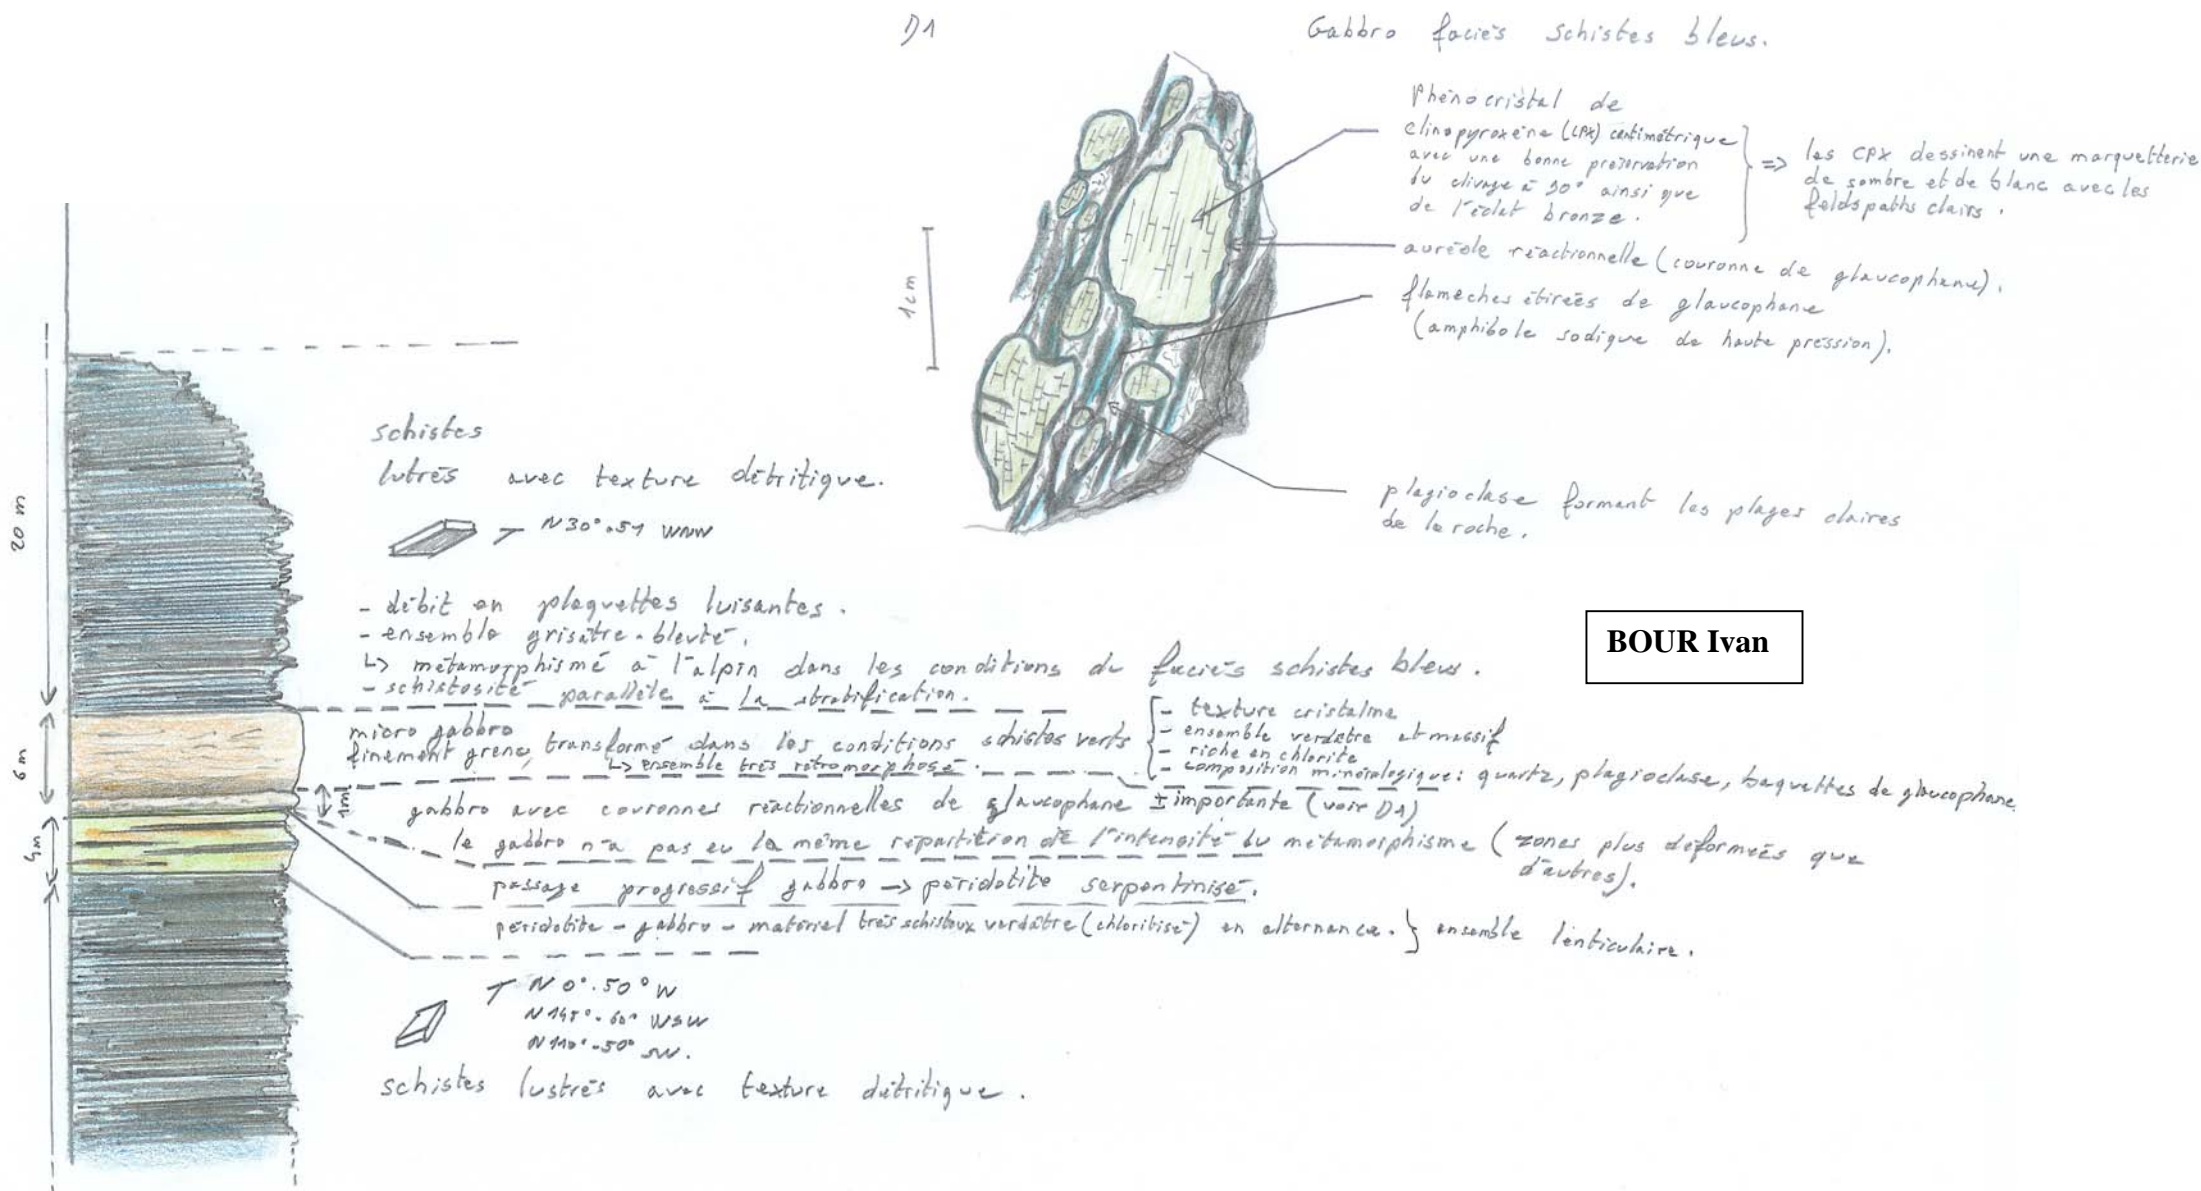 D1
Gabbro faciès schistes bleus.
Phénocristal de
clinopyroxène (CPX) centimétrique
avec une bonne préservation
du clivage à 90° ainsi que
de l'éclat bronze.
=> les CPX dessinent une marquetterie
de sombre et de blanc avec les
feldspaths clairs.
auréole réactionnelle (couronne de glaucophane).
flamèches étirées de glaucophane
(amphibole sodique de haute pression).
1cm
plagioclase formant les plages claires
de la roche.
20 m
schistes
lutrés avec texture détritique.
N30°.51 WNW
- débit en plaquettes luisantes.
- ensemble grisâtre-bleuté.
↳ métamorphisme à l'alpin dans les conditions du faciès schistes bleus.
- schistosité parallèle à la stratification.
BOUR Ivan
6m
micro gabbro
finement grenu, transformé dans les conditions schistes verts
↳ ensemble très rétromorphosé.
- texture cristalline
- ensemble verdâtre et massif
- riche en chlorite
- composition minéralogique: quartz, plagioclase, baguettes de glaucophane
gabbro avec couronnes réactionnelles de glaucophane ± importante (voir D1)
le gabbro n'a pas eu la même répartition de l'intensité du métamorphisme (zones plus déformées que
d'autres).
passage progressif gabbro -> péridotite serpentinisé.
péridotite - gabbro - matériel très schisteux verdâtre (chloritisé) en alternance. } ensemble lenticulaire.
N0°.50°W
N145°-60° WSW
N110°-50° SW.
schistes lustrés avec texture détritique.